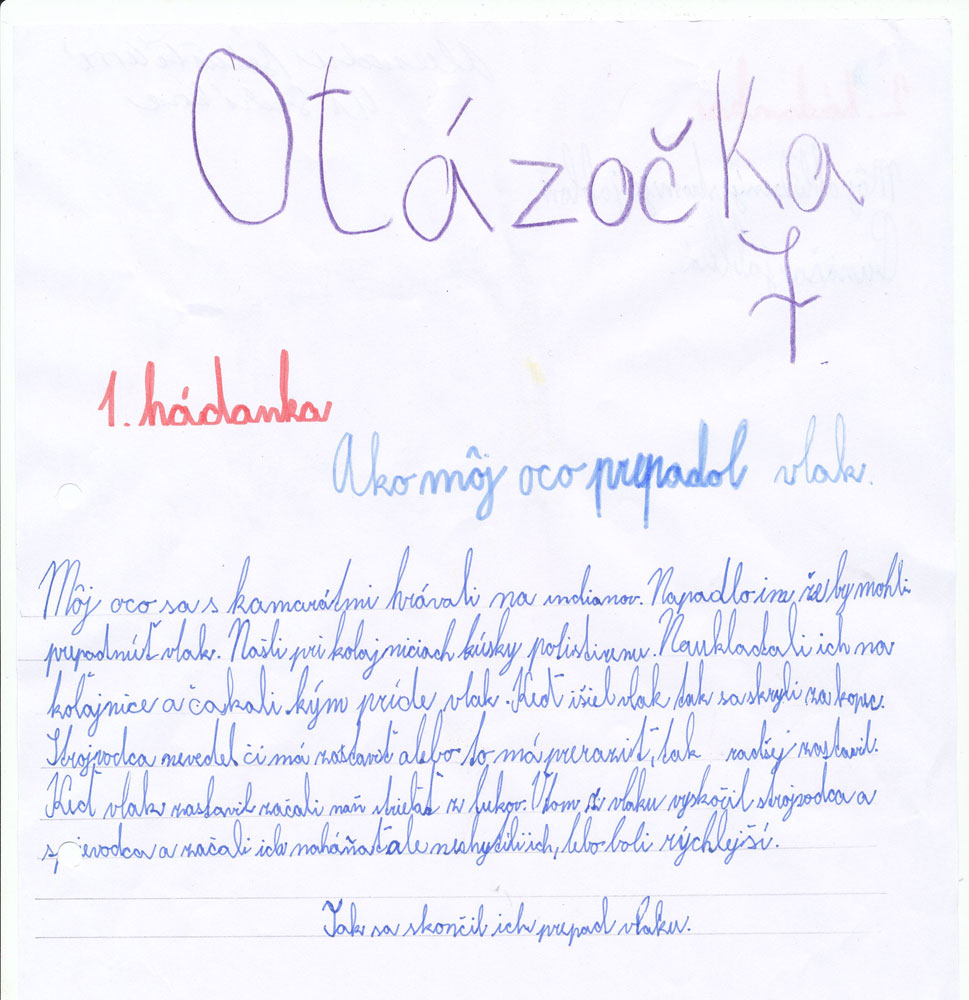 Otázočka
7
1. hádanka
Ako môj oco prepadol vlak.
Môj oco sa s kamarátmi hrávali na indianov. Napadlo im že by mohli
prepadnúť vlak. Našli pri kolajniciach kúsky polistirenu. Naukladali ich na
koľajnice a čakali kým príde vlak. Keď išiel vlak tak sa skryli za kopec.
Strojvodca nevedel či má zastaviť alebo to má preraziť, tak radšej zastavil.
Keď vlak zastavil začali naň strielať z lukov. Vtom z vlaku vyskočil strojvodca a
sprievodca a začali ich naháňať ale nechytili ich, lebo boli rýchlejší.
Tak sa skončil ich prepad vlaku.